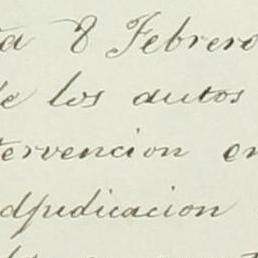 ta 8 Febrero
de los autos
tervencion en
djudicacion